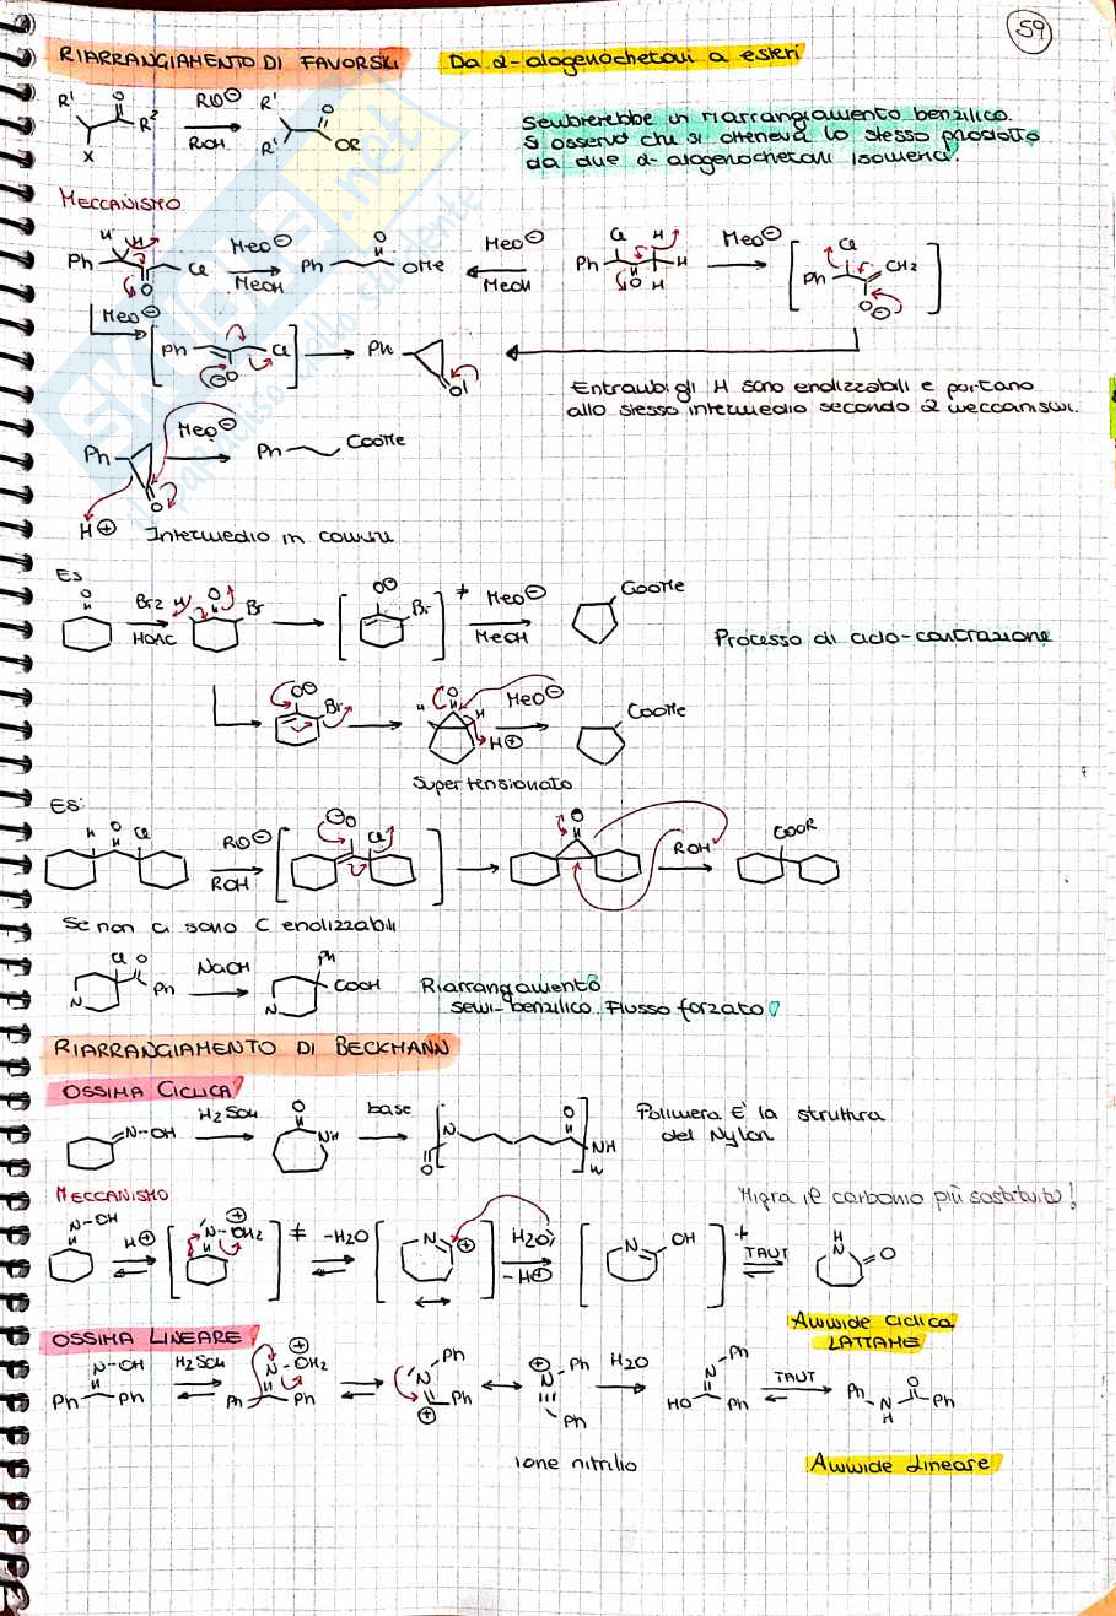 59
RIARRANGIAMENTO DI FAVORSKI Da α-alogenochetoni a esteri
R' O R² X RO⊖ ROH R' R' O OR
Sembrerebbe un riarrangiamento benzilico.
Si osservò che si otteneva lo stesso prodotto
da due α-alogenochetoni isomeri!
MECCANISMO
H H Ph O Cl MeO⊖ MeOH Ph O OMe MeO⊖ MeOH Cl H Ph O H H MeO⊖ Cl Ph CH2 O⊖
MeO⊖ Ph O⊖ Cl Ph O
Entrambi gli H sono enolizzabili e portano
allo stesso intermedio secondo 2 meccanismi.
Ph O MeO⊖ Ph COOMe
H⊕ Intermedio in comune
Es
O Br2 HOAC H O Br O⊖ Br ≠ MeO⊖ MeOH COOMe
Processo di ciclo-contrazione
O⊖ Br H O H MeO⊖ H⊕ COOMe
Supertensionato
ES:
H O Cl RO⊖ ROH ⊖O Cl O ROH COOR
Se non ci sono C enolizzabili
N Cl O Ph NaOH N Ph COOH
Riarrangiamento
semi-benzilico. Flusso forzato!
RIARRANGIAMENTO DI BECKMANN
OSSIMA CICLICA!
N-OH H2SO4 O NH base N O O NH n
Polimero. E' la struttura
del Nylon
MECCANISMO
Migra il carbonio più sostituito!
N-OH H⊕ N-OH2 ⊕ ≠ -H2O N ⊕ H2O -H⊕ N OH ≠ TAUT H N O
Ammide Ciclica
LATTAME
OSSIMA LINEARE!
N-OH Ph Ph H2SO4 N-OH2 ⊕ Ph Ph N Ph Ph ⊕ ⊕ N Ph Ph H2O N Ph HO Ph TAUT Ph N H O Ph
Ione nitrilio
Ammide Lineare